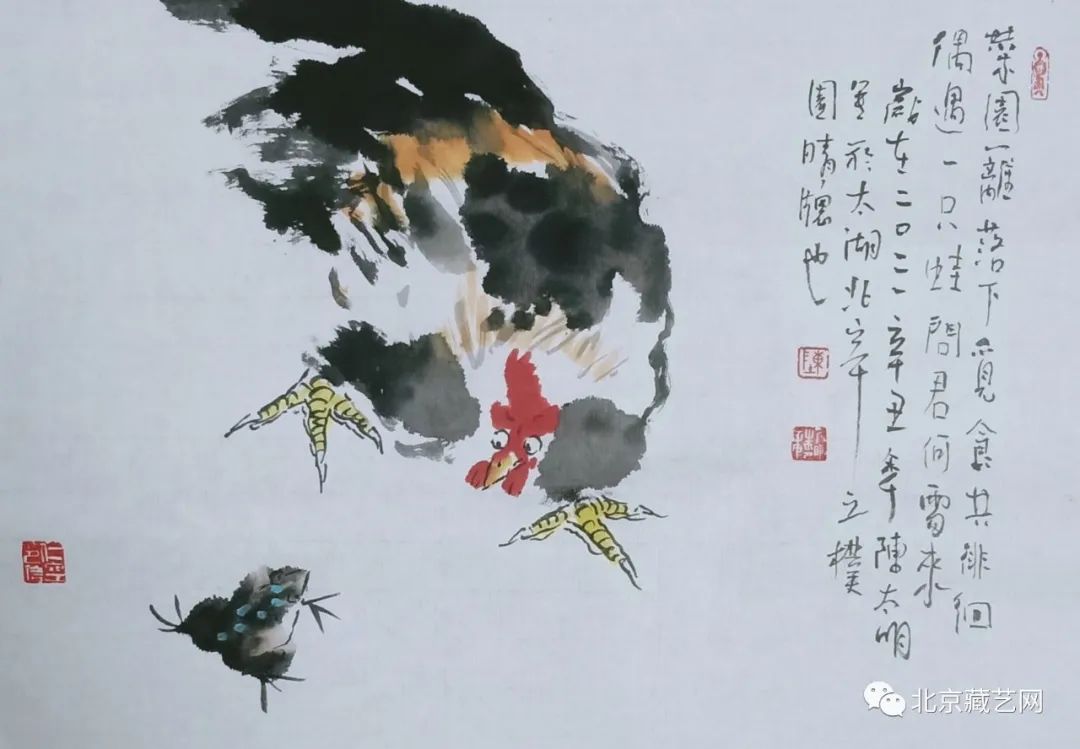 菜園籬落下覓食共徘徊
偶遇一只蛙問君何處來
歲在二〇二一辛丑年陳太明
筆於太湖北岸立樸
園晴牕也
陳
北京藏艺网